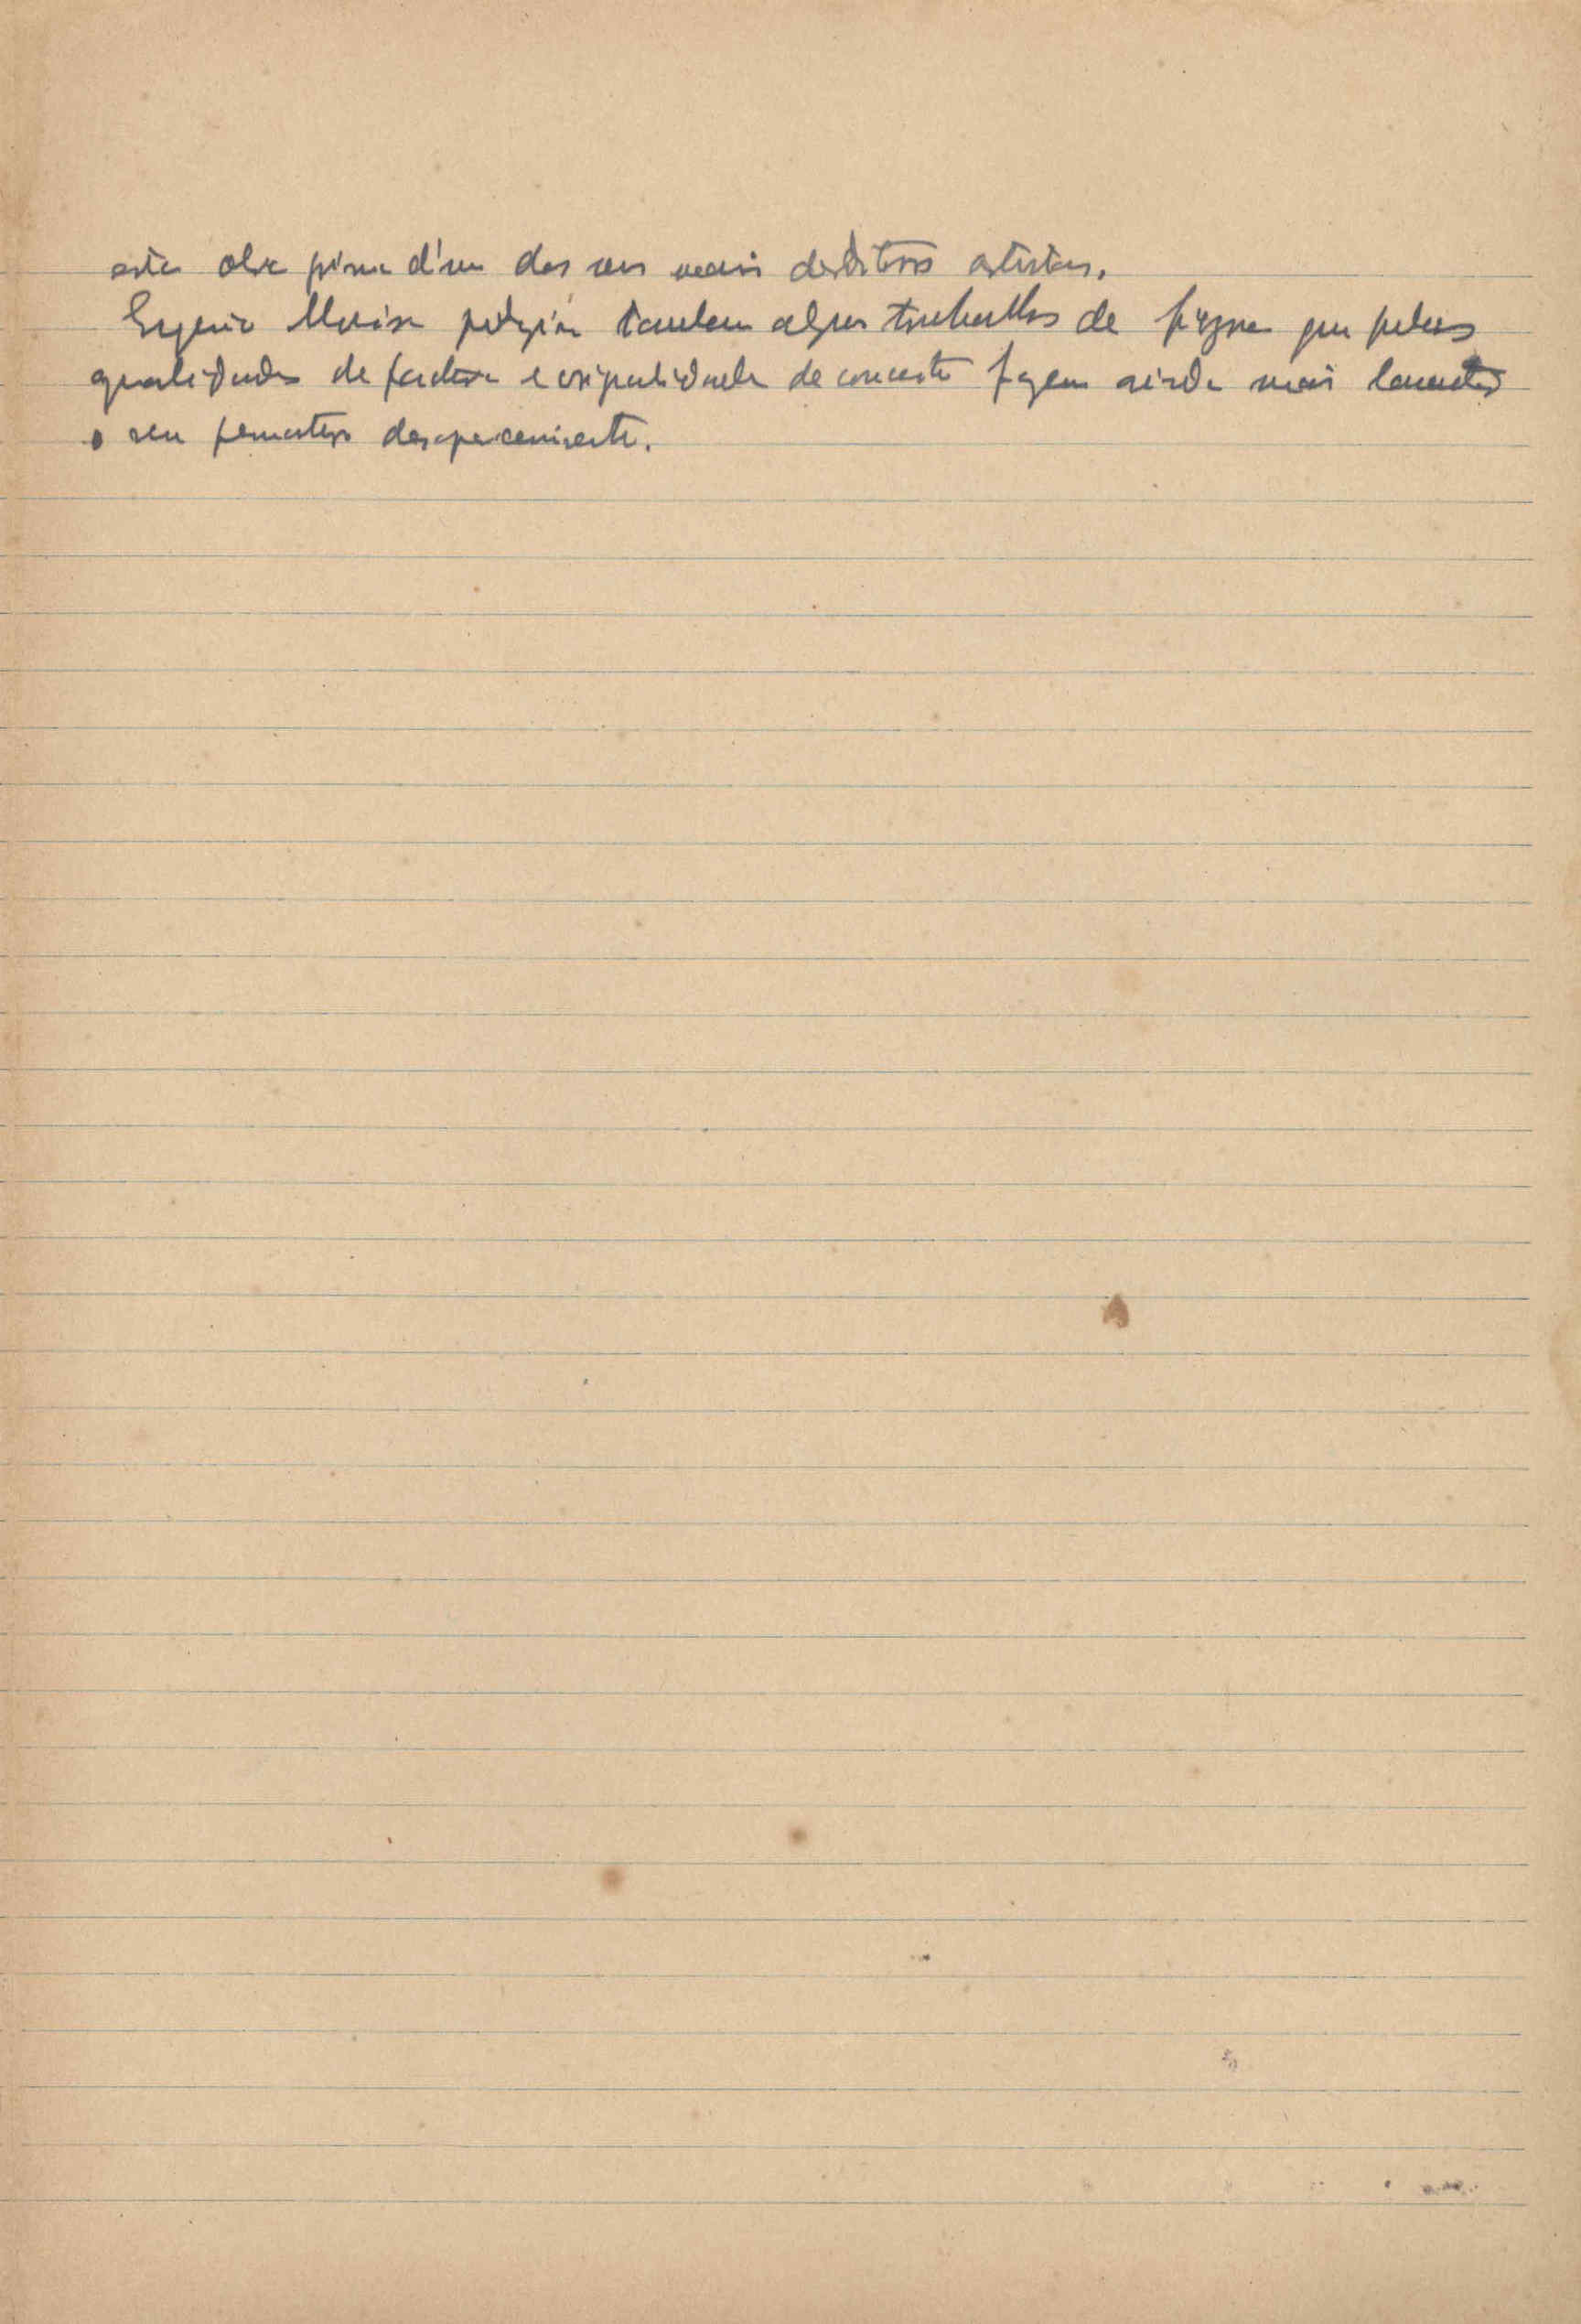 esta obra prima d'um dos seus mais distintos artistas.
Eugenio Moreira tambem alguns trabalhos de figura que pelas
qualidades de factura e originalidade de conceito fazem ainda mais lamentado
o seu prematuro desaparecimento.